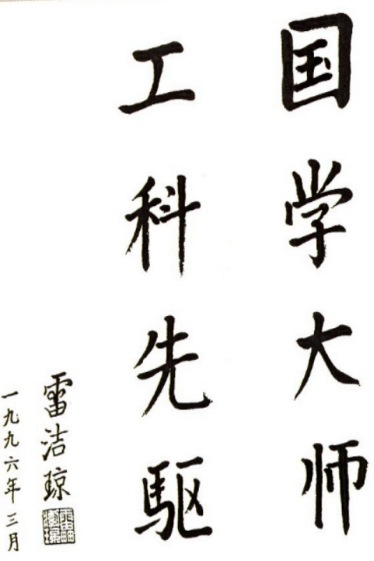 国学大师
工科先驱
雷洁琼
一九九六年三月